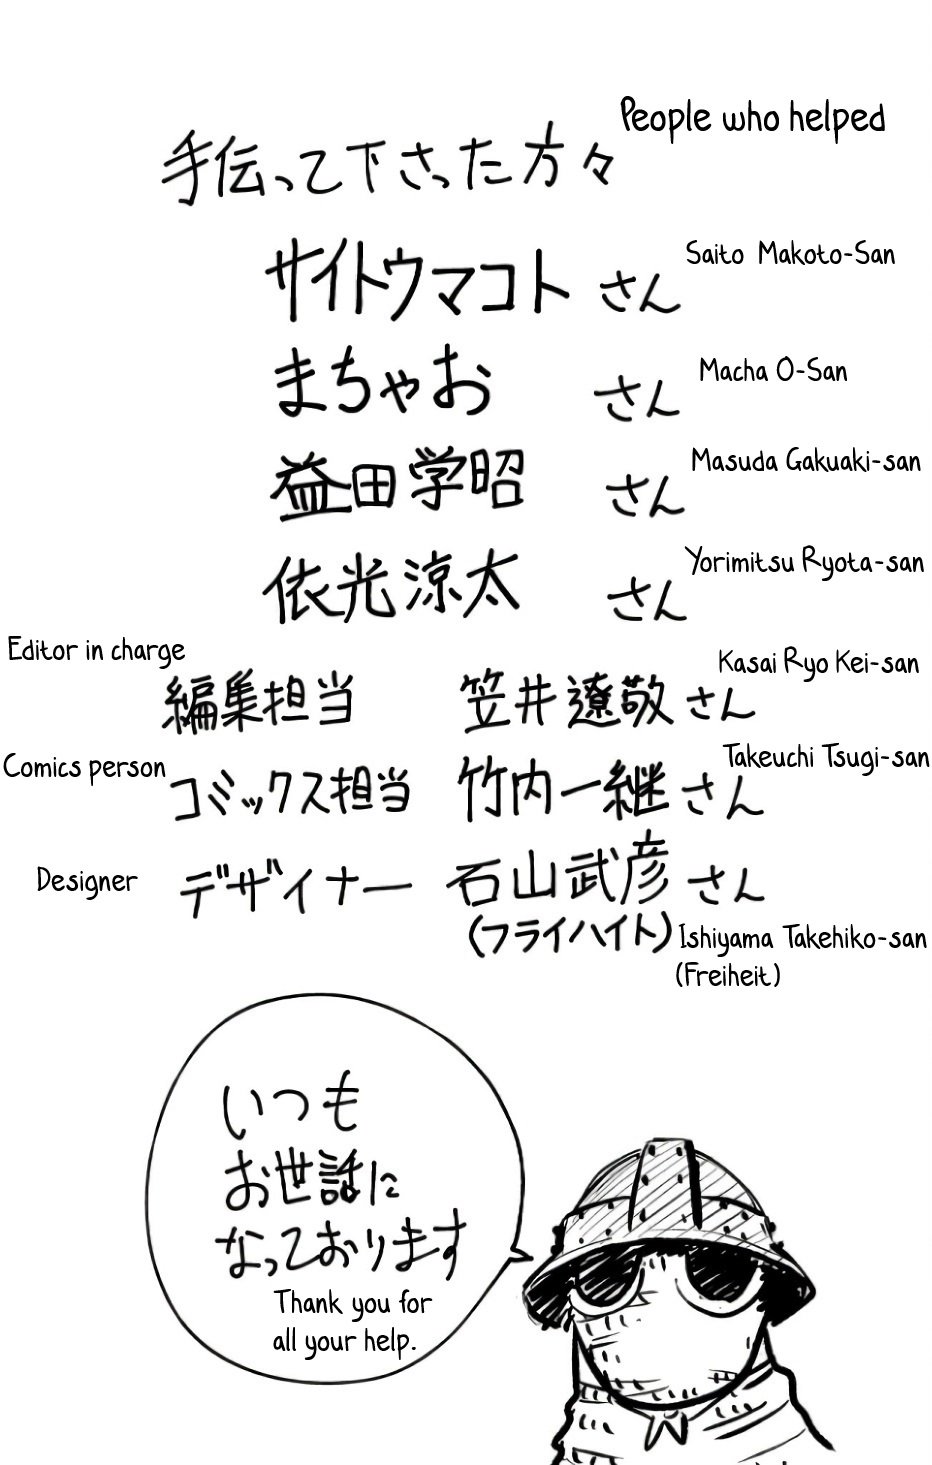 People who helped
手伝って下さった方々
サイトウマコト さん Saito Makoto-San
まちゃお さん Macha O-San
益田学昭 さん Masuda Gakuaki-san
依光涼太 さん Yorimitsu Ryota-san
Editor in charge Kasai Ryo Kei-san
編集担当 笠井遼敬さん
Comics person Takeuchi Tsugi-san
コミックス担当 竹内一継さん
Designer デザイナー 石山武彦さん
(フライハイト) Ishiyama Takehiko-san
(Freiheit)
いつも
お世話に
なっております
Thank you for
all your help.